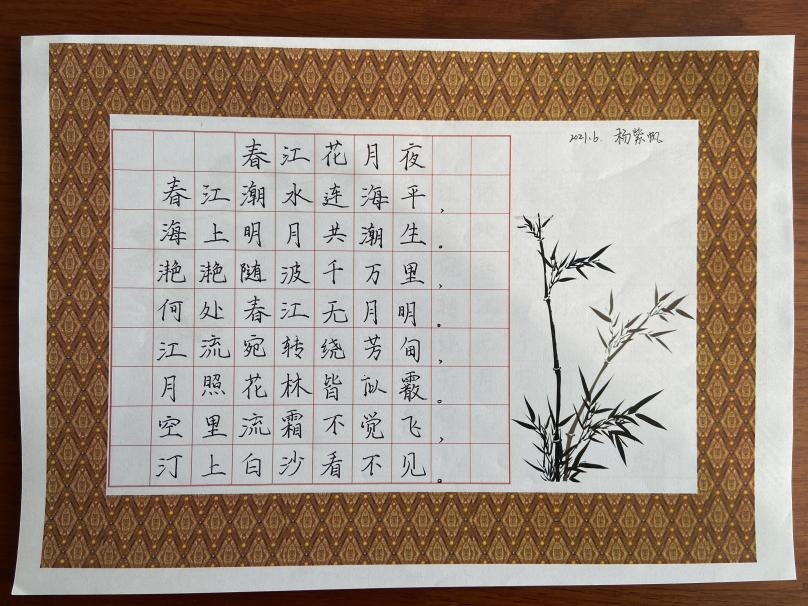 2021.6. 杨紫帆
春江花月夜
春江潮水连海平，
海上明月共潮生。
滟滟随波千万里，
何处春江无月明。
江流宛转绕芳甸，
月照花林皆似霰。
空里流霜不觉飞，
汀上白沙看不见。